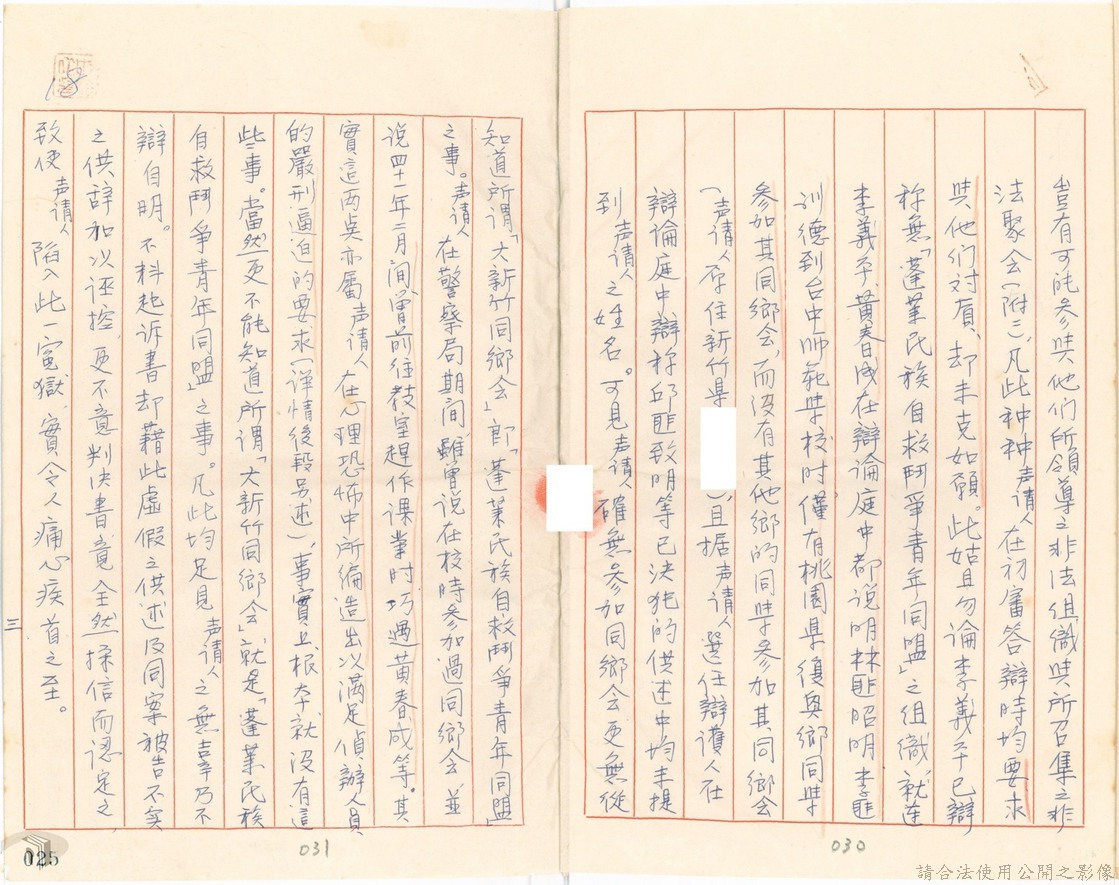 豈有可能參与他们所領導之非法組織与所召集之非
法聚会(附三),凡此种种声请人在初審答辯時均要求
与他们对質,却未克如願。此姑且勿論李義平已辯
称無「蓬莱民族自救鬥爭青年同盟」之組織,就连
李義平、黄春成在辯論庭中都说明林匪昭明、李匪
训德到台中师範学校时,僅有桃園県復興鄉同学
参加其同鄉会,而没有其他鄉的同学参加其同鄉会
(声请人原住新竹県),且据声请人選任辯護人在
辯論庭中辯称邱匪致明等已決犯的供述中均未提
到声请人之姓名。可見声请人確無参加同鄉会更無從
030
知道所谓「大新竹同鄉会」即「蓬莱民族自救鬥爭青年同盟」
之事。声请人在警察局期间,雖曾说在校時参加過同鄉会並
说四十一年二月間曾前往教室趕作课業时巧遇黄春成等。其
實這两点亦屬声请人在心理恐怖中所编造出以满足偵辦人員
的嚴刑逼迫的要求(详情後段另述),事實上根本就没有這
些事。當然更不能知道所谓「大新竹同鄉会」就是「蓬莱民族
自救鬥爭青年同盟」之事。凡此均足見声请人之無辜乃不
辯自明。不料起诉書却藉此虚假之供述及同案被告不实
之供辞加以诬控,更不意判决書竟全然採信而認定之,
致使声请人陷入此一冤獄,實令人痛心疾首之至。
三
031
025
請合法使用公開之影像